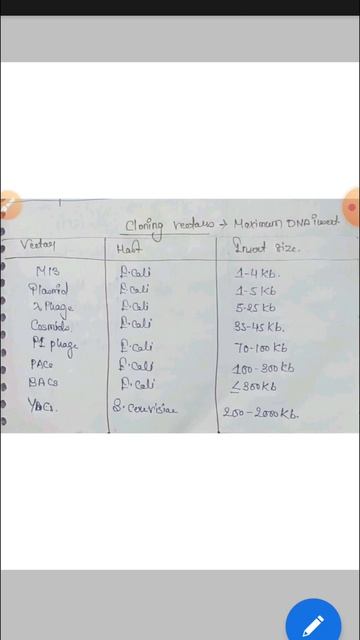 Cloning vectors → Maximum DNA insert
Vector Host Insert size.
M13 E.Coli 1-4 Kb.
Plasmid E.Coli 1-5 Kb
λ Phage E.Coli 5-25 Kb
Cosmids. E.Coli 35-45 Kb.
P1 phage E.Coli 70-100 Kb
PACs E.Coli 100-300 Kb
BACs E.Coli ≤300 Kb
YACs. S. cerevisiae 200-2000 Kb.